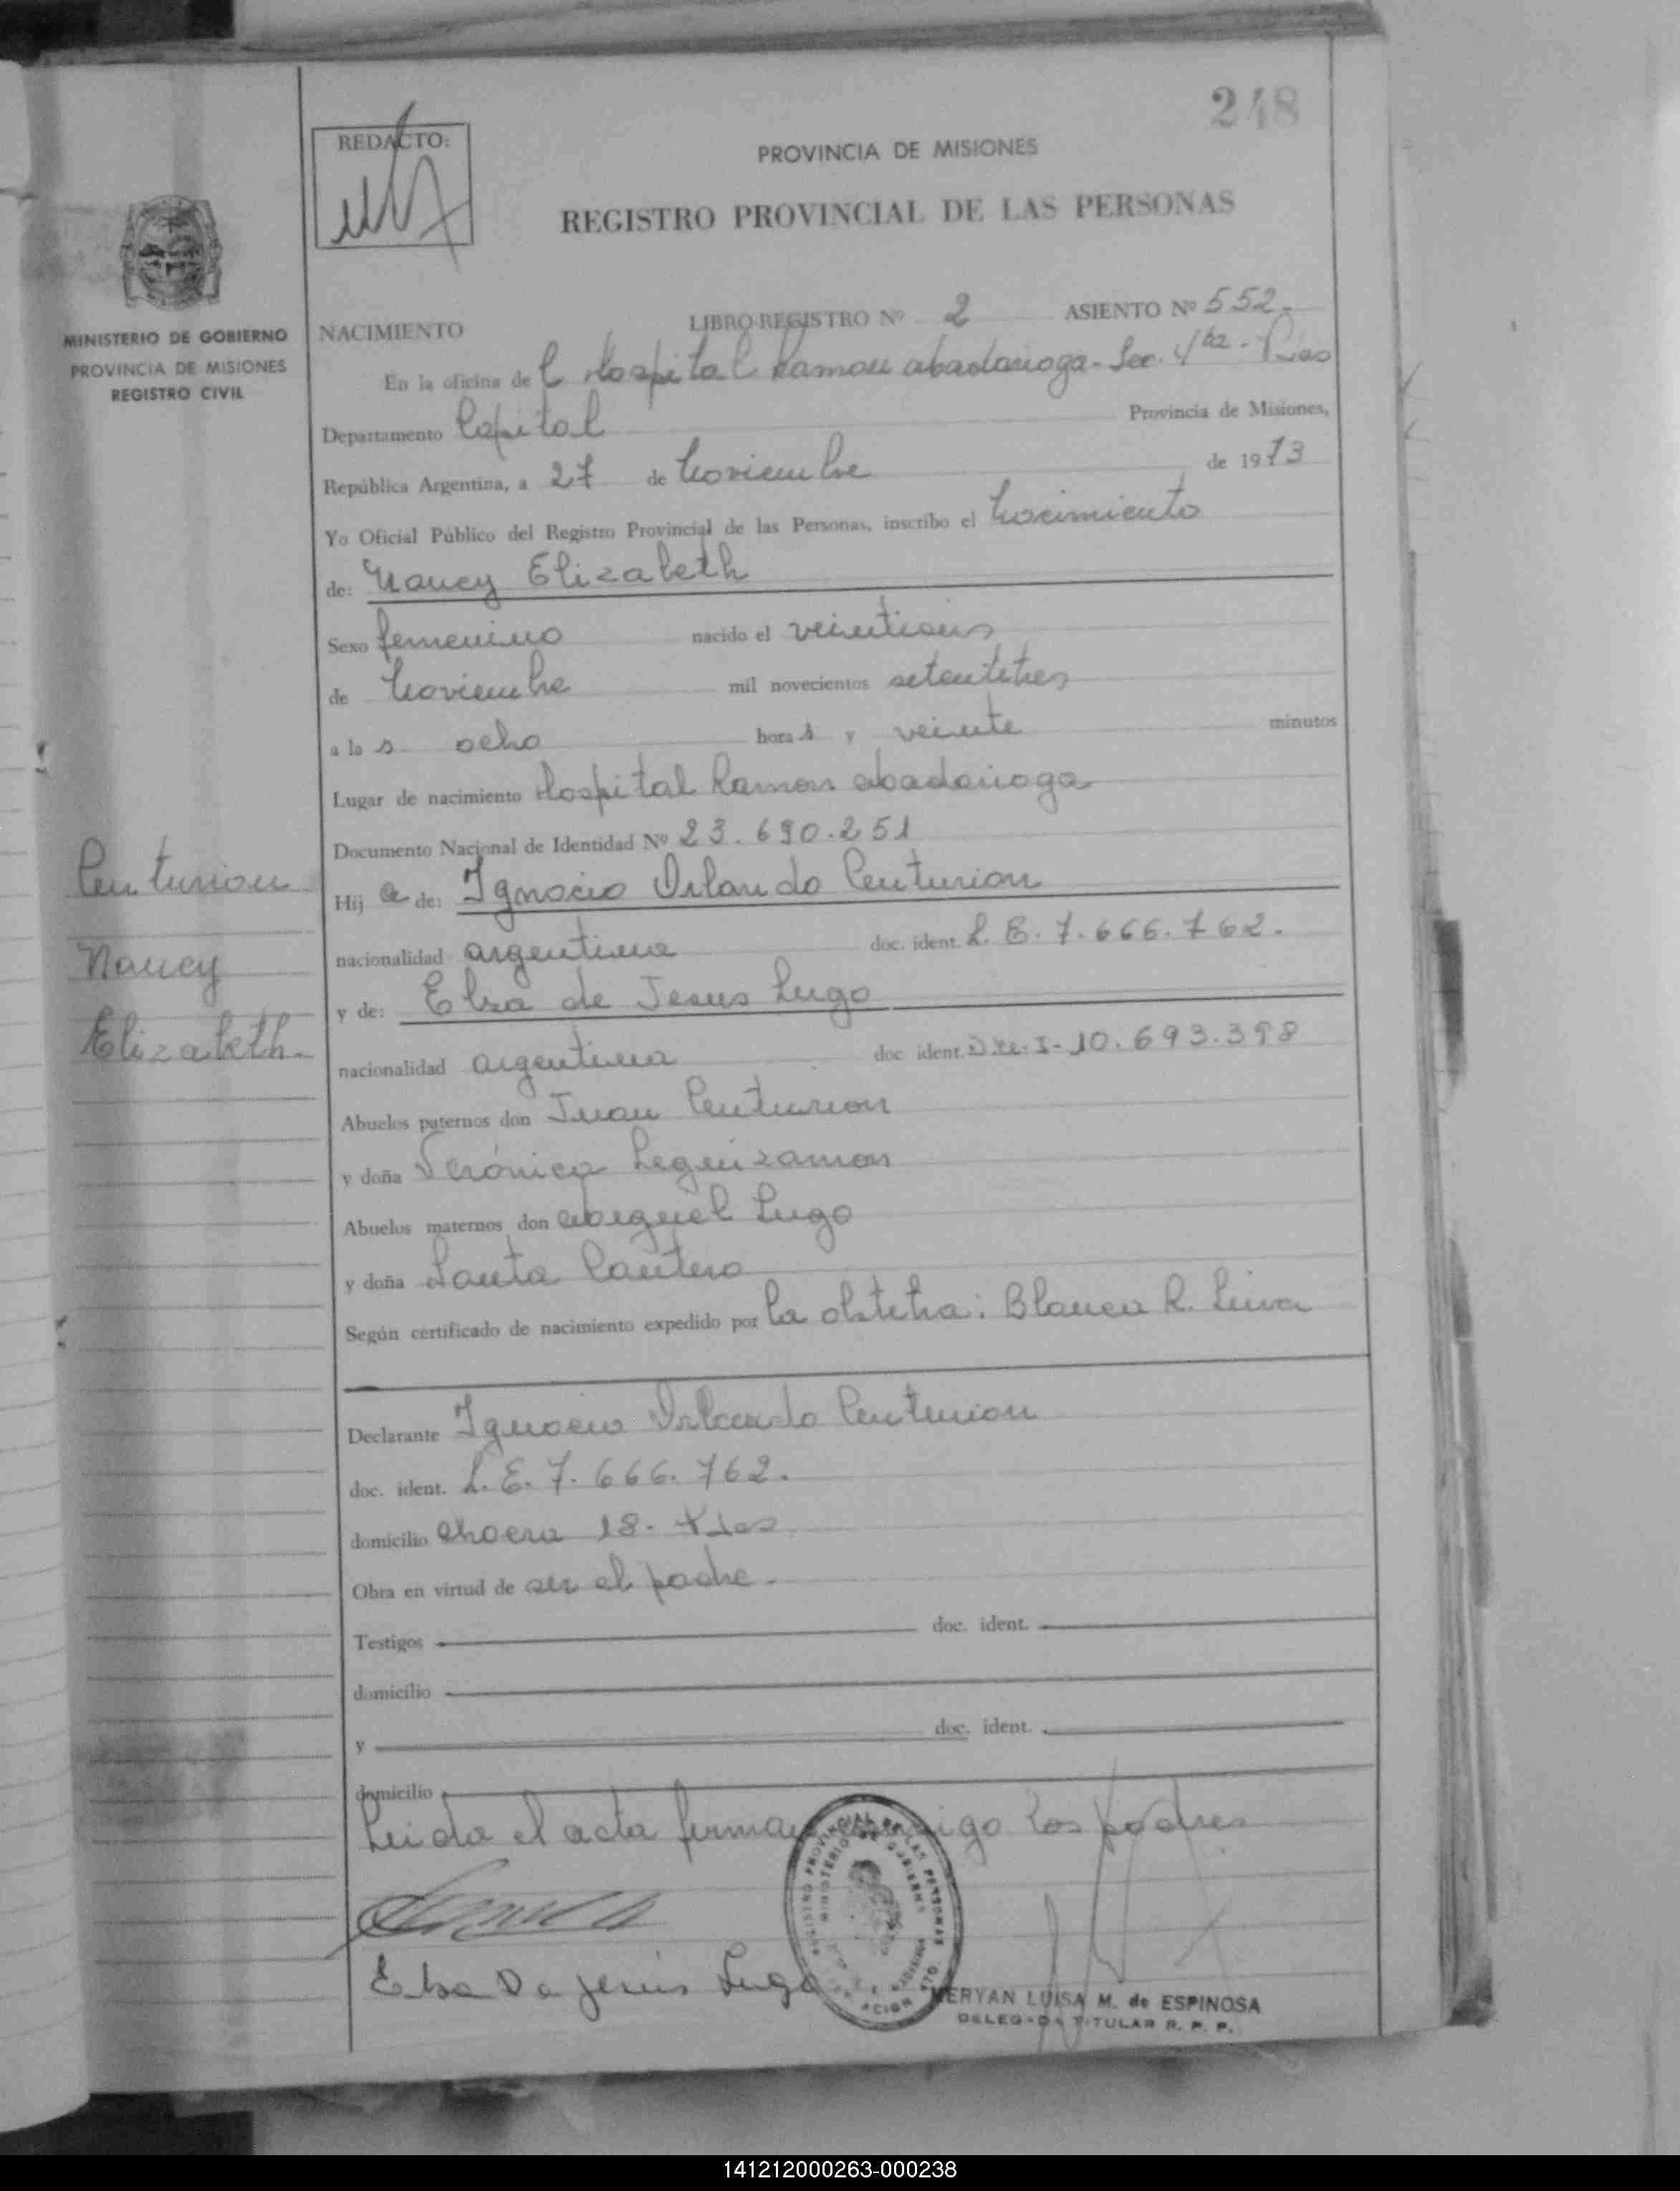 248
REDACTO:
PROVINCIA DE MISIONES
REGISTRO PROVINCIAL DE LAS PERSONAS
MINISTERIO DE GOBIERNO
PROVINCIA DE MISIONES
REGISTRO CIVIL
NACIMIENTO LIBRO-REGISTRO Nº 2 ASIENTO Nº 552-
En la oficina de l Hospital Ramon abadarioga - Sec. 4ta -
Departamento Capital Provincia de Misiones,
República Argentina, a 27 de Noviembre de 1973
Yo Oficial Público del Registro Provincial de las Personas, inscribo el Nacimiento
de: Nancy Elizabeth
Sexo femenino nacido el
de Noviembre mil novecientos setentitres
a la s ocho hora s y veinte minutos
Lugar de nacimiento Hospital Ramon abadarioga
Documento Nacional de Identidad Nº 23.690.251
Centurion
Nancy
Elizabeth.
Hij a de: Ignacio Orlando Centurion
nacionalidad argentina doc. ident. L. E. 7.666.762.
y de: Elsa de Jesus Lugo
nacionalidad argentina doc ident. 10.693.398
Abuelos paternos don Juan Centurion
y doña Verónica Leguizamon
Abuelos maternos don Lugo
y doña Santa Cantero
Según certificado de nacimiento expedido por la obstetra: Blanca R.
Declarante Ignacio Orlando Centurion
doc. ident. L. E. 7. 666. 762.
domicilio Chacra 18-
Obra en virtud de ser el padre.
Testigos doc. ident.
domicilio
y doc. ident.
domicilio
Leida el acta firman conmigo los padres
Elsa De Jesus Lugo
REGISTRO PROVINCIAL DE LAS PERSONAS
MINISTERIO DE GOBIERNO
MERYAN LUISA M. de ESPINOSA
DELEGADA TITULAR R. P. P.
141212000263-000238